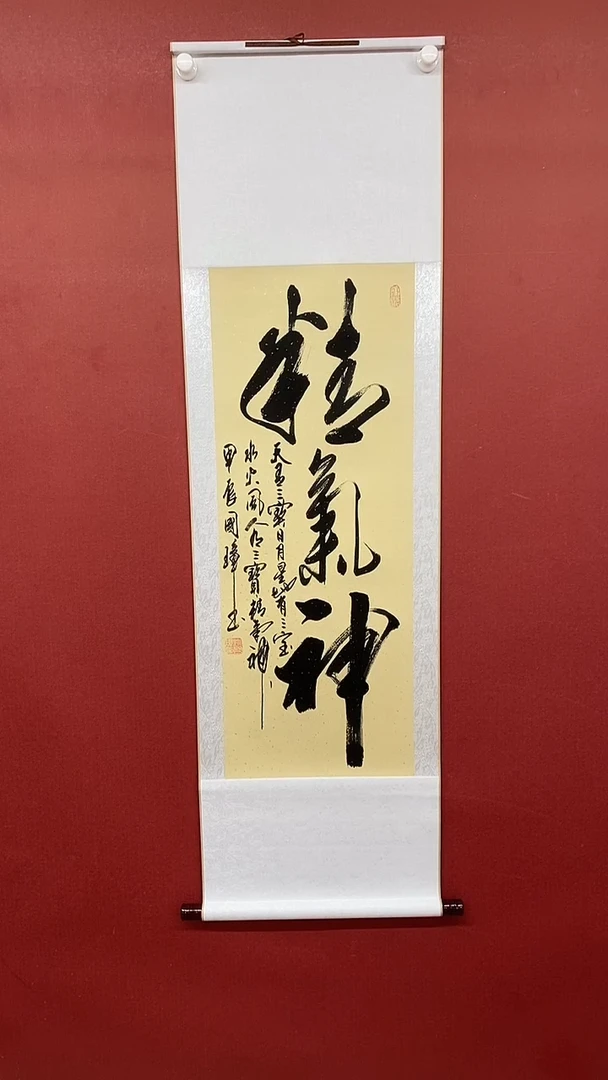 精氣神
天有三寶日月星地有三宝
水火風人有三寶精氣神
甲辰國瑋书